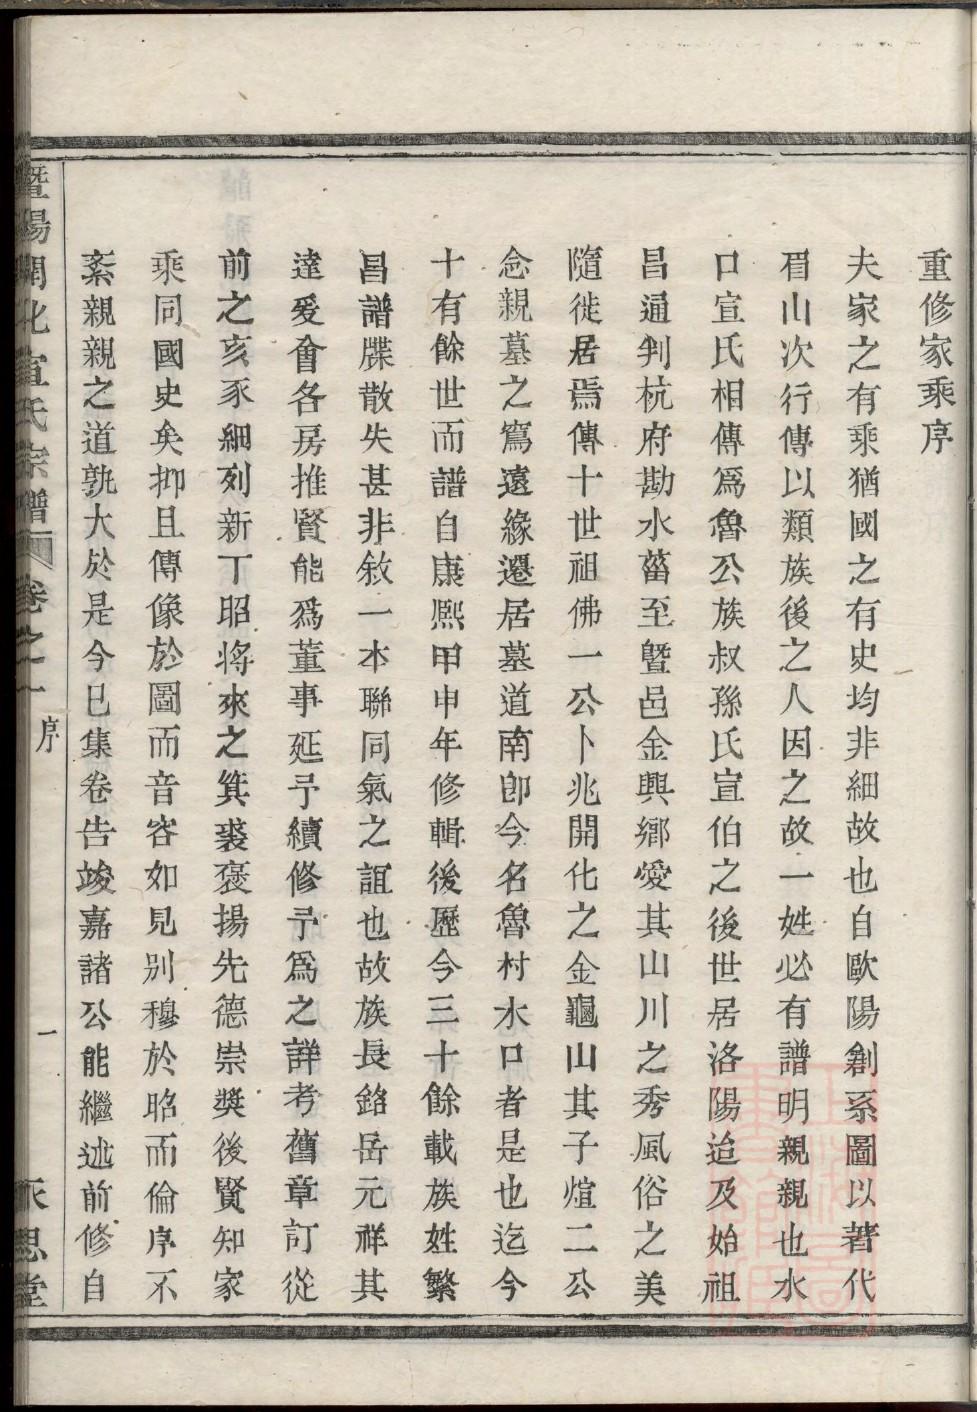 重修家乘序
夫家之有乘猶國之有史均非細故也自歐陽創系圖以著代
眉山次行傳以類族後之人因之故一姓必有譜明親親也水
口宣氏相傳爲魯公族叔孫氏宣伯之後世居洛陽迨及始祖
昌通判杭府勘水菑至暨邑金興鄉愛其山川之秀風俗之美
隨徙居焉傳十世祖佛一公卜兆開化之金龜山其子煊二公
念親墓之窵遠緣遷居墓道南卽今名魯村水口者是也迄今
十有餘世而譜自康熙甲申年修輯後歷今三十餘載族姓繁
昌譜牒散失甚非敘一本聯同氣之誼也故族長銘岳元祥其
達爰會各房推賢能爲董事延予續修予爲之詳考舊章訂從
前之亥豕細列新丁昭將來之箕裘褒揚先德崇獎後賢知家
乘同國史矣抑且傳像於圖而音容如見别穆於昭而倫序不
紊親親之道孰大於是今巳集卷告竣嘉諸公能繼述前修自
暨陽開化宣氏宗譜 卷之一 序 一 永思堂